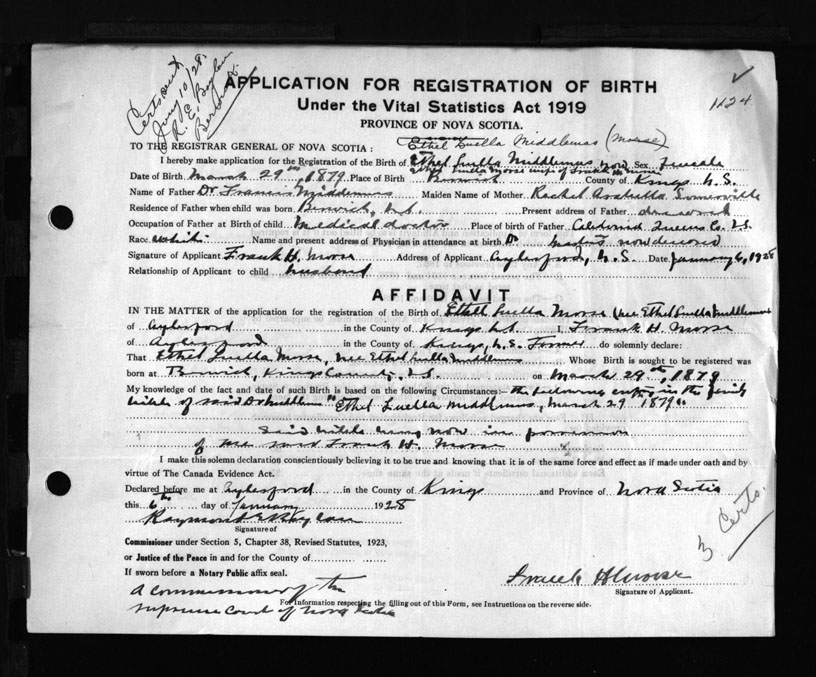 Certs sent
Jany 10/28
R. E. 
APPLICATION FOR REGISTRATION OF BIRTH
Under the Vital Statistics Act 1919
1124
PROVINCE OF NOVA SCOTIA.
Ethel Luella Middlemas (Morse)
TO THE REGISTRAR GENERAL OF NOVA SCOTIA :
I hereby make application for the Registration of the Birth of Ethel Luella Middlemas now Sex Female
Ethel Luella Morse wife of Frank H. Morse
Date of Birth March 29th, 1879 Place of Birth Berwick County of Kings N.S.
Name of Father Dr Francis Middlemas Maiden Name of Mother Rachel Somerville
Residence of Father when child was born Berwick, N.S. Present address of Father deceased
Occupation of Father at Birth of child Medical doctor Place of birth of Father Caledonia Queens Co. N.S.
Race White Name and present address of Physician in attendance at birth Dr now deceased
Signature of Applicant Frank H. Morse Address of Applicant Aylesford, N.S. Date January 6, 1928
Relationship of Applicant to child husband
AFFIDAVIT
IN THE MATTER of the application for the registration of the Birth of Ethel Luella Morse (nee Ethel Luella Middlemas
of Aylesford in the County of Kings N.S. I, Frank H. Morse
of Aylesford in the County of Kings, N.S. Farmer do solemnly declare:
That Ethel Luella Morse, nee Ethel Luella Middlemas Whose Birth is sought to be registered was
born at Berwick, Kings County, N.S. on March 29th, 1879
My knowledge of the fact and date of such Birth is based on the following Circumstances:— the following entry in the family
bible of said Dr Middlemas "Ethel Luella Middlemas, March 29 1879"
said bible being now in possession
of me said Frank H. Morse
I make this solemn declaration conscientiously believing it to be true and knowing that it is of the same force and effect as if made under oath and by
virtue of The Canada Evidence Act.
Declared before me at Aylesford in the County of Kings and Province of Nova Scotia
this 6th day of January 1928
Raymond
Signature of
Commissioner under Section 5, Chapter 38, Revised Statutes, 1923,
or Justice of the Peace in and for the County of
If sworn before a Notary Public affix seal.
3 Certs.
Frank H Morse
Signature of Applicant.
A Commissioner of the
Supreme Court of Nova Scotia
For Information respecting the filling out of this Form, see Instructions on the reverse side.